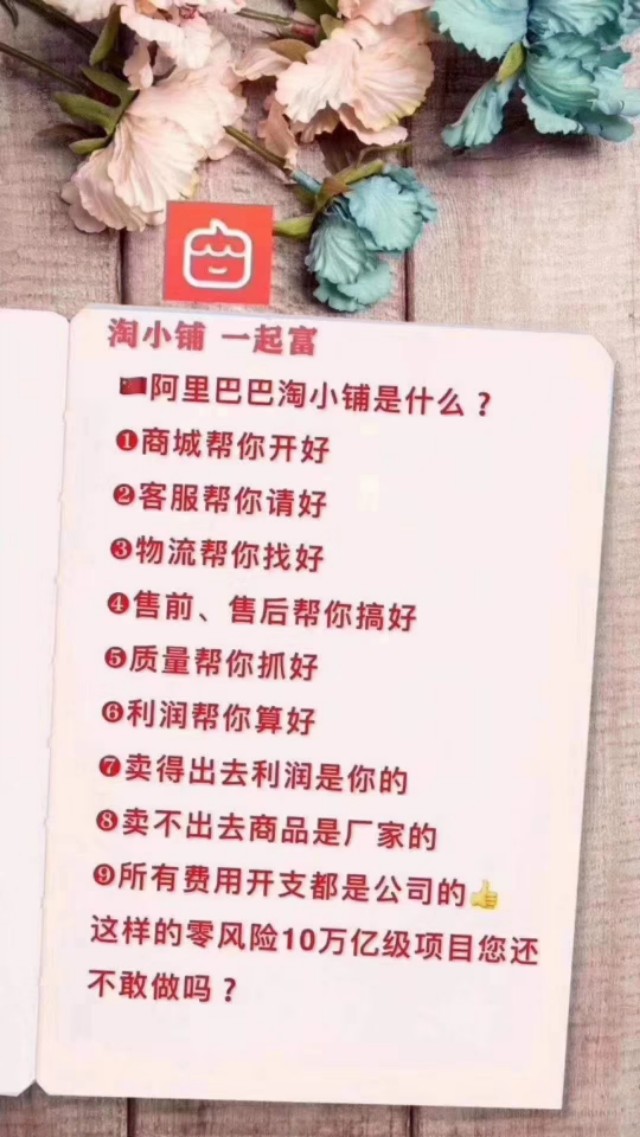 淘小铺 一起富
🇨🇳阿里巴巴淘小铺是什么？
❶商城帮你开好
❷客服帮你请好
❸物流帮你找好
❹售前、售后帮你搞好
❺质量帮你抓好
❻利润帮你算好
❼卖得出去利润是你的
❽卖不出去商品是厂家的
❾所有费用开支都是公司的👍
这样的零风险10万亿级项目您还
不敢做吗？